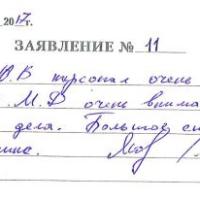 2017г.
ЗАЯВЛЕНИЕ № 11
Ю.В персонал очень
М.Д очень внима
дела. Большое сп